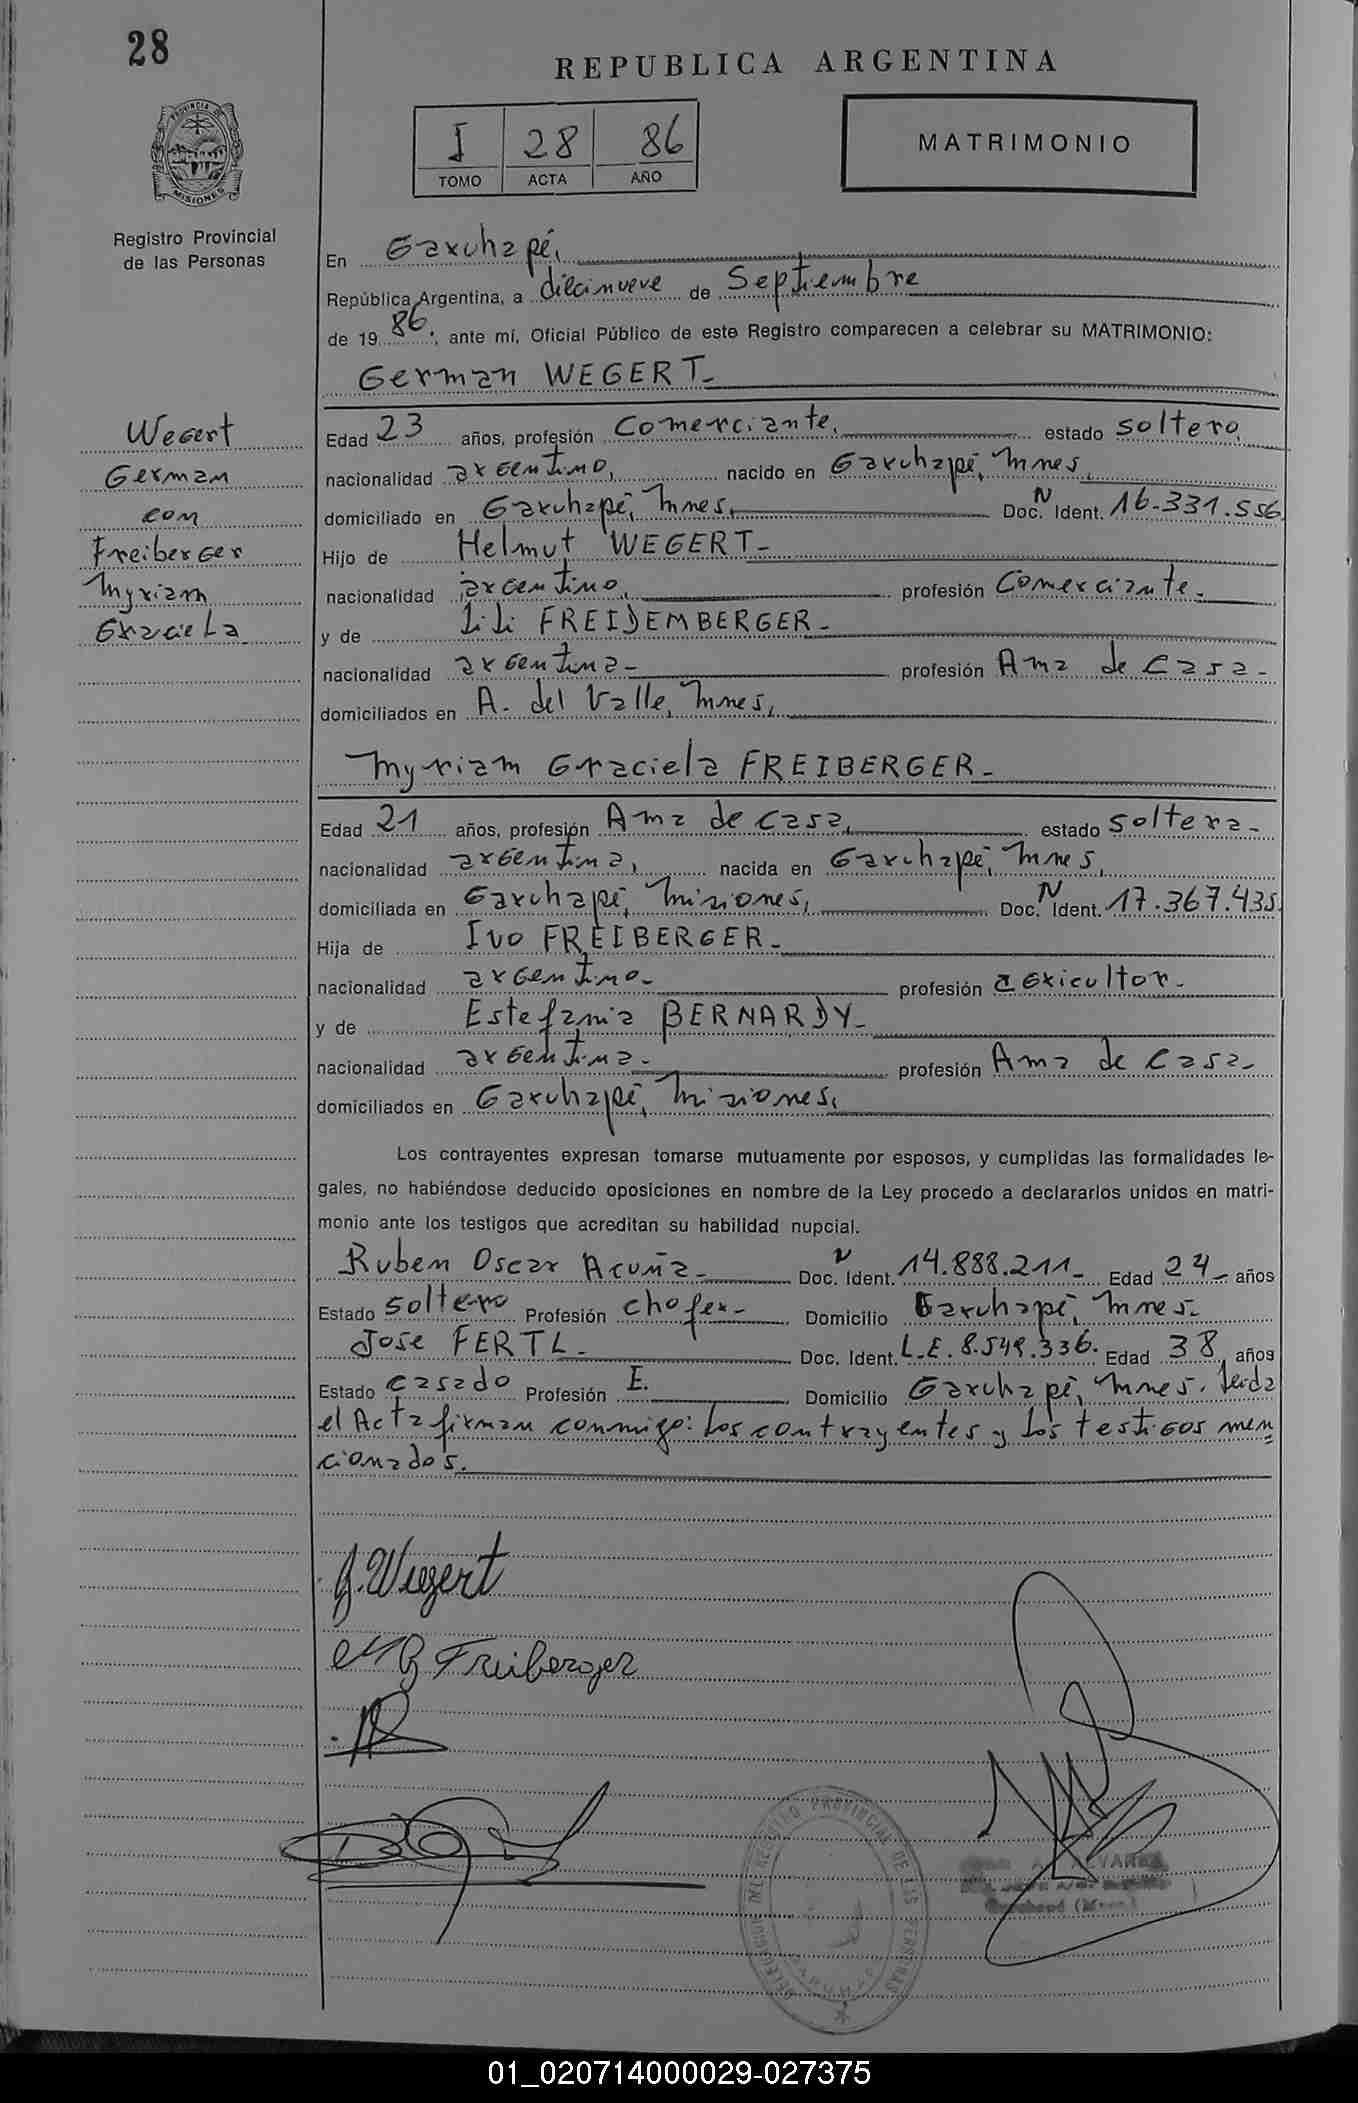 28
REPUBLICA ARGENTINA
I 28 86
TOMO ACTA AÑO
MATRIMONIO
PROVINCIA DE
MISIONES
Registro Provincial
de las Personas
En Garuhapé,
República Argentina, a diecinueve de Septiembre
de 1986, ante mí, Oficial Público de este Registro comparecen a celebrar su MATRIMONIO:
German WEGERT-
Wegert
German
con
Freiberger
Myriam
Graciela
Edad 23 años, profesión Comerciante, estado soltero,
nacionalidad argentino, nacido en Garuhapé, Mnes,
domiciliado en Garuhapé, Mnes, Doc. N Ident. 16.331.556
Hijo de Helmut WEGERT-
nacionalidad argentino, profesión Comerciante-
y de Lili FREIDEMBERGER-
nacionalidad argentina- profesión Ama de Casa-
domiciliados en A. del Valle, Mnes,
Myriam Graciela FREIBERGER-
Edad 21 años, profesión Ama de Casa, estado soltera-
nacionalidad argentina, nacida en Garuhapé, Mnes,
domiciliada en Garuhapé, Misiones, Doc. N Ident. 17.367.435
Hija de Ivo FREIBERGER-
nacionalidad argentino- profesión agricultor-
y de Estefania BERNARDY-
nacionalidad argentina- profesión Ama de Casa-
domiciliados en Garuhapé, Misiones,
Los contrayentes expresan tomarse mutuamente por esposos, y cumplidas las formalidades le-
gales, no habiéndose deducido oposiciones en nombre de la Ley procedo a declararlos unidos en matri-
monio ante los testigos que acreditan su habilidad nupcial.
Ruben Oscar Acuña- Doc. N Ident. 14.888.211- Edad 24- años
Estado soltero Profesión chofer- Domicilio Garuhapé, Mnes-
Jose FERTL- Doc. Ident. L.E. 8.549.336. Edad 38, años
Estado casado Profesión E. Domicilio Garuhapé, Mnes. Leida
el Acta firman conmigo: los contrayentes y los testigos men
cionados.
G. Wegert
MG Freiberger
DELEGACION DEL REGISTRO PROVINCIAL DE LAS PERSONAS
GARUHAPE
ALVAREZ
Garuhapé (Mnes.)
01_020714000029-027375